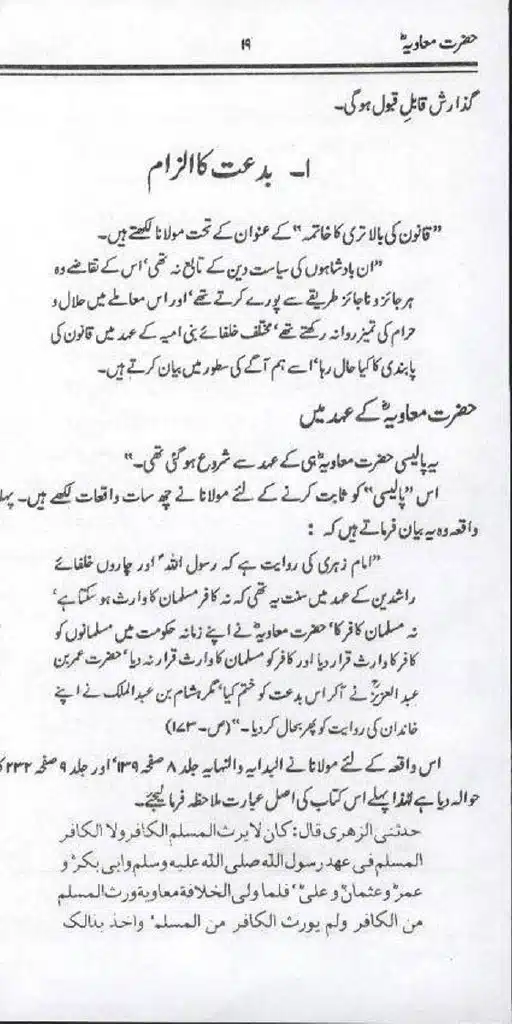 حضرت معاویہؓ
۱۹
گذارش قابلِ قبول ہوگی۔
۱۔ بدعت کا الزام
”قانون کی بالاتری کا خاتمہ“ کے عنوان کے تحت مولانا لکھتے ہیں۔
”ان بادشاہوں کی سیاست دین کے تابع نہ تھی‘ اس کے تقاضے وہ
ہر جائز و ناجائز طریقے سے پورے کرتے تھے‘ اور اس معاملے میں حلال و
حرام کی تمیز روا نہ رکھتے تھے‘ مختلف خلفائے بنی امیہ کے عہد میں قانون کی
پابندی کا کیا حال رہا‘ اسے ہم آگے کی سطور میں بیان کرتے ہیں۔
حضرت معاویہؓ کے عہد میں
یہ پالیسی حضرت معاویہؓ ہی کے عہد سے شروع ہو گئی تھی۔“
اس ”پالیسی“ کو ثابت کرنے کے لئے مولانا نے چھ سات واقعات لکھے ہیں۔ پہلا
واقعہ وہ یہ بیان فرماتے ہیں کہ :
”امام زہری کی روایت ہے کہ رسول اللہ ؐ اور چاروں خلفائے
راشدین کے عہد میں سنت یہ تھی کہ نہ کافر مسلمان کا وارث ہو سکتا ہے‘
نہ مسلمان کافر کا‘ حضرت معاویہؓ نے اپنے زمانہ حکومت میں مسلمانوں کو
کافر کا وارث قرار دیا اور کافر کو مسلمان کا وارث قرار نہ دیا‘ حضرت عمر بن
عبد العزیزؒ نے آکر اس بدعت کو ختم کیا‘ مگر ہشام بن عبد الملک نے اپنے
خاندان کی روایت کو پھر بحال کر دیا۔“ (ص۔ ۱۷۳)
اس واقعہ کے لئے مولانا نے البدایہ والنہایہ جلد ۸ صفحہ ۱۳۹‘ اور جلد ۹ صفحہ ۲۳۲ کا
حوالہ دیا ہے لہٰذا پہلے اس کتاب کی اصل عبارت ملاحظہ فرمالیجئے۔
حدثنی الزهری قال: کان لا یرث المسلم الکافر ولا الکافر
المسلم فی عهد رسول الله صلی الله علیه وسلم وابی بکرؓ و
عمرؓ وعثمانؓ وعلیؓ‘ فلما ولی الخلافة معاویة ورث المسلم
من الکافر ولم یورث الکافر من المسلم‘ واخذ بذالک